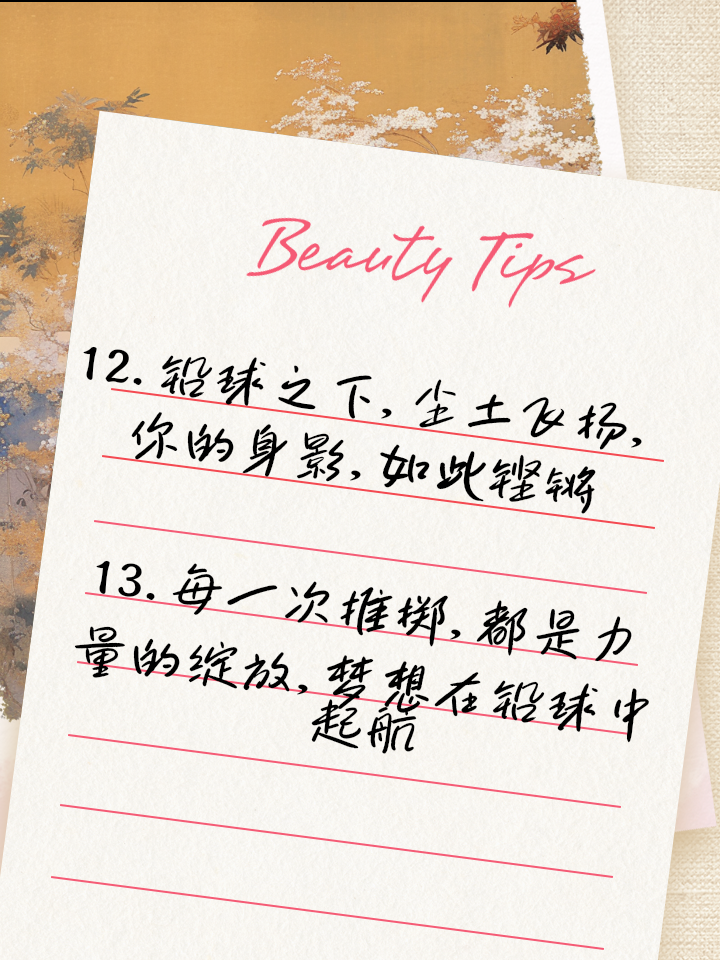 Beauty Tips
12. 铅球之下,尘土飞扬,
你的身影,如此铿锵
13. 每一次推掷,都是力
量的绽放,梦想在铅球中
起航